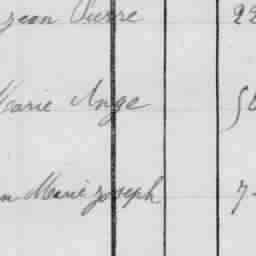 jean Pierre 22
Marie Ange 56
n Marie joseph 7